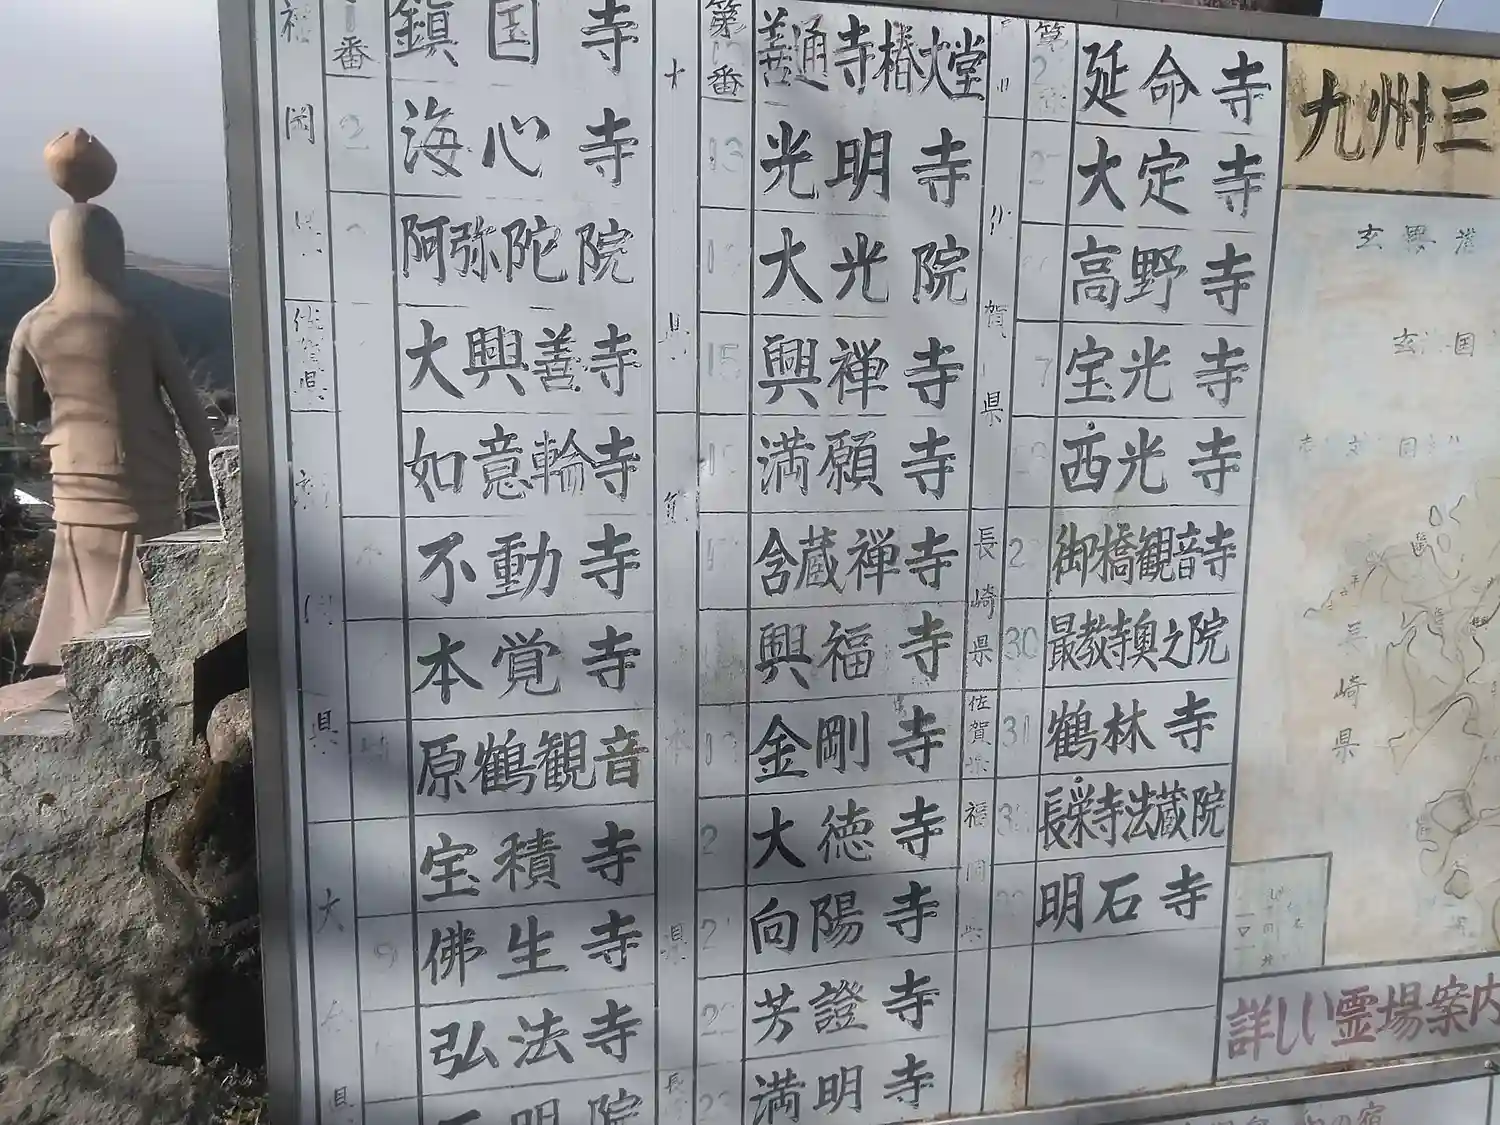 番
鎮国寺
2
海心寺
阿弥陀院
大興善寺
如意輪寺
不動寺
本覚寺
原鶴観音
宝積寺
9
佛生寺
弘法寺
明院
福岡県
佐賀県
福岡県
大
県
第
番
善通寺椿大堂
13
光明寺
大光院
15
興禅寺
満願寺
含蔵禅寺
興福寺
金剛寺
2
大徳寺
2
向陽寺
22
芳證寺
23
満明寺
大
県
熊本県
長
第
延命寺
大定寺
高野寺
7
宝光寺
西光寺
2
御橋観音寺
30
最教寺奥之院
31
鶴林寺
3
長栄寺法蔵院
明石寺
佐賀県
長崎県
佐賀県
福岡県
九州三
玄界灘
玄 国
国
長崎県
詳しい霊場案内
の宿